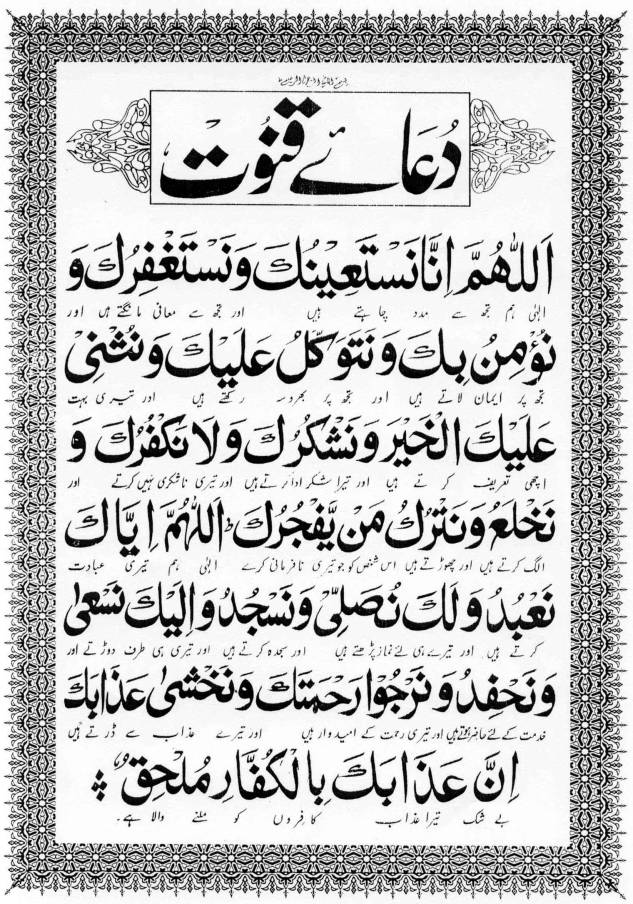 بسم اللہ الرحمن الرحیم
دُعَائے قنُوت
اَللّٰهُمَّ اِنَّا نَسْتَعِيْنُكَ وَنَسْتَغْفِرُكَ وَ
الٰہی ہم تجھ سے مدد چاہتے ہیں اور تجھ سے معافی مانگتے ہیں اور
نُؤْمِنُ بِكَ وَنَتَوَكَّلُ عَلَيْكَ وَنُثْنِيْ
تجھ پر ایمان لاتے ہیں اور تجھ پر بھروسہ رکھتے ہیں اور تیری بہت
عَلَيْكَ الْخَيْرَ وَنَشْكُرُكَ وَلَا نَكْفُرُكَ وَ
اچھی تعریف کرتے ہیں اور تیرا شکر ادا کرتے ہیں اور تیری ناشکری نہیں کرتے اور
نَخْلَعُ وَنَتْرُكُ مَنْ يَّفْجُرُكَ ط اَللّٰهُمَّ اِيَّاكَ
الگ کرتے ہیں اور چھوڑتے ہیں اس شخص کو جو تیری نافرمانی کرے الٰہی ہم تیری عبادت
نَعْبُدُ وَلَكَ نُصَلِّيْ وَنَسْجُدُ وَاِلَيْكَ نَسْعٰى
کرتے ہیں اور تیرے ہی لئے نماز پڑھتے ہیں اور سجدہ کرتے ہیں اور تیری ہی طرف دوڑتے اور
وَنَحْفِدُ وَنَرْجُوْا رَحْمَتَكَ وَنَخْشٰى عَذَابَكَ
خدمت کے لئے حاضر ہوتے ہیں اور تیری رحمت کے امیدوار ہیں اور تیرے عذاب سے ڈرتے ہیں
اِنَّ عَذَابَكَ بِالْكُفَّارِ مُلْحِقٌ
بے شک تیرا عذاب کافروں کو ملنے والا ہے۔